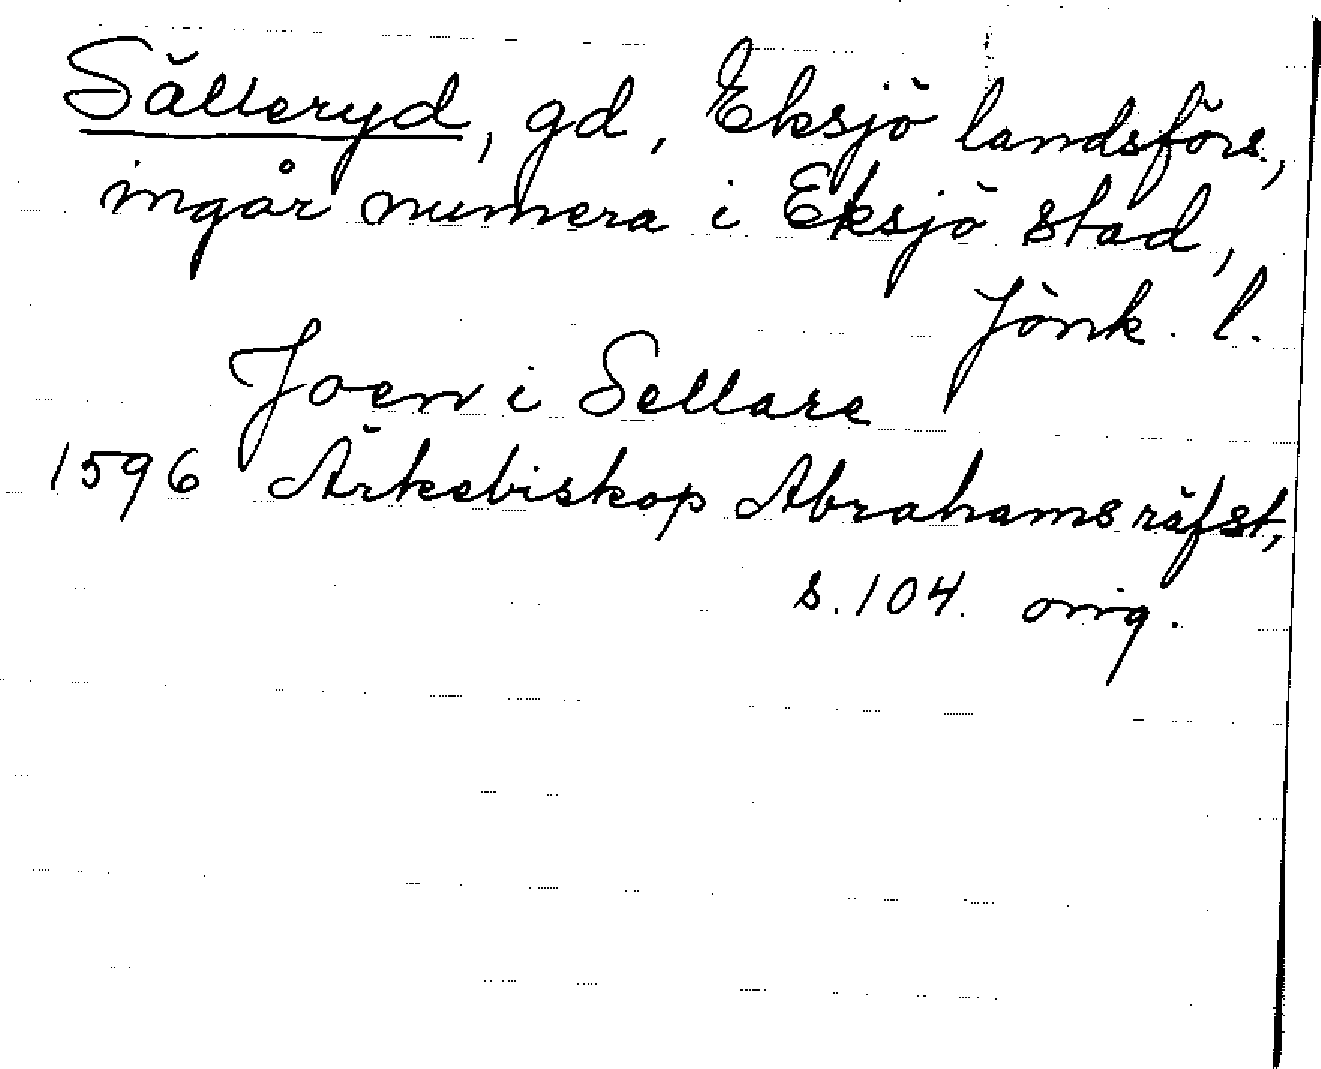 Sälleryd, gd, Eksjö landsförs.,
ingår numera i Eksjö stad,
Jönk. l.
Joen i Sellare
1596 Ärkebiskop Abrahams räfst,
s. 104. orig.